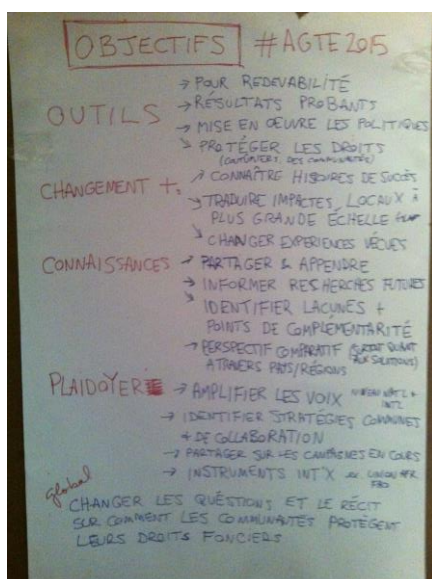 OBJECTIFS #AGTE2015
OUTILS
→ POUR REDEVABILITÉ
→ RÉSULTATS PROBANTS
→ MISE EN OEUVRE LES POLITIQUES
→ PROTÉGER LES DROITS
DES COMMUNAUTÉS)
CHANGEMENT +
→ CONNAÎTRE HISOIRES DE SUCCÈS
→ TRADUIRE IMPACTES LOCAUX À
PLUS GRANDE ÉCHELLE
→ CHANGER EXPERIENCES VÉCUES
CONNAISSANCES → PARTAGER & APPENDRE
→ INFORMER RESHERCHES FUTURES
→ IDENTIFIER LACUNES +
POINTS DE COMPLÉMENTARITÉ
→ PERSPECTIF COMPARATIF (SURTOUT QUANT
ATRAVERS PAYS/RÉGIONS AUX SOLUTIONS)
PLAIDOYER → AMPLIFIER LES VOIX NIVEAU NAT'L +
INT'L
→ IDENTIFIER STRATÉGIES COMMUNES
+ DE COLLABORATION
→ PARTAGER SUR LES CAMPAGNES EN COURS
→ INSTRUMENTS INT'X ex. UNION AFR.
global
CHANGER LES QUESTIONS ET LE RÉCIT
SUR COMMENT LES COMMUNAUTÉS PROTÈGENT
LEURS DROITS FONCIERS